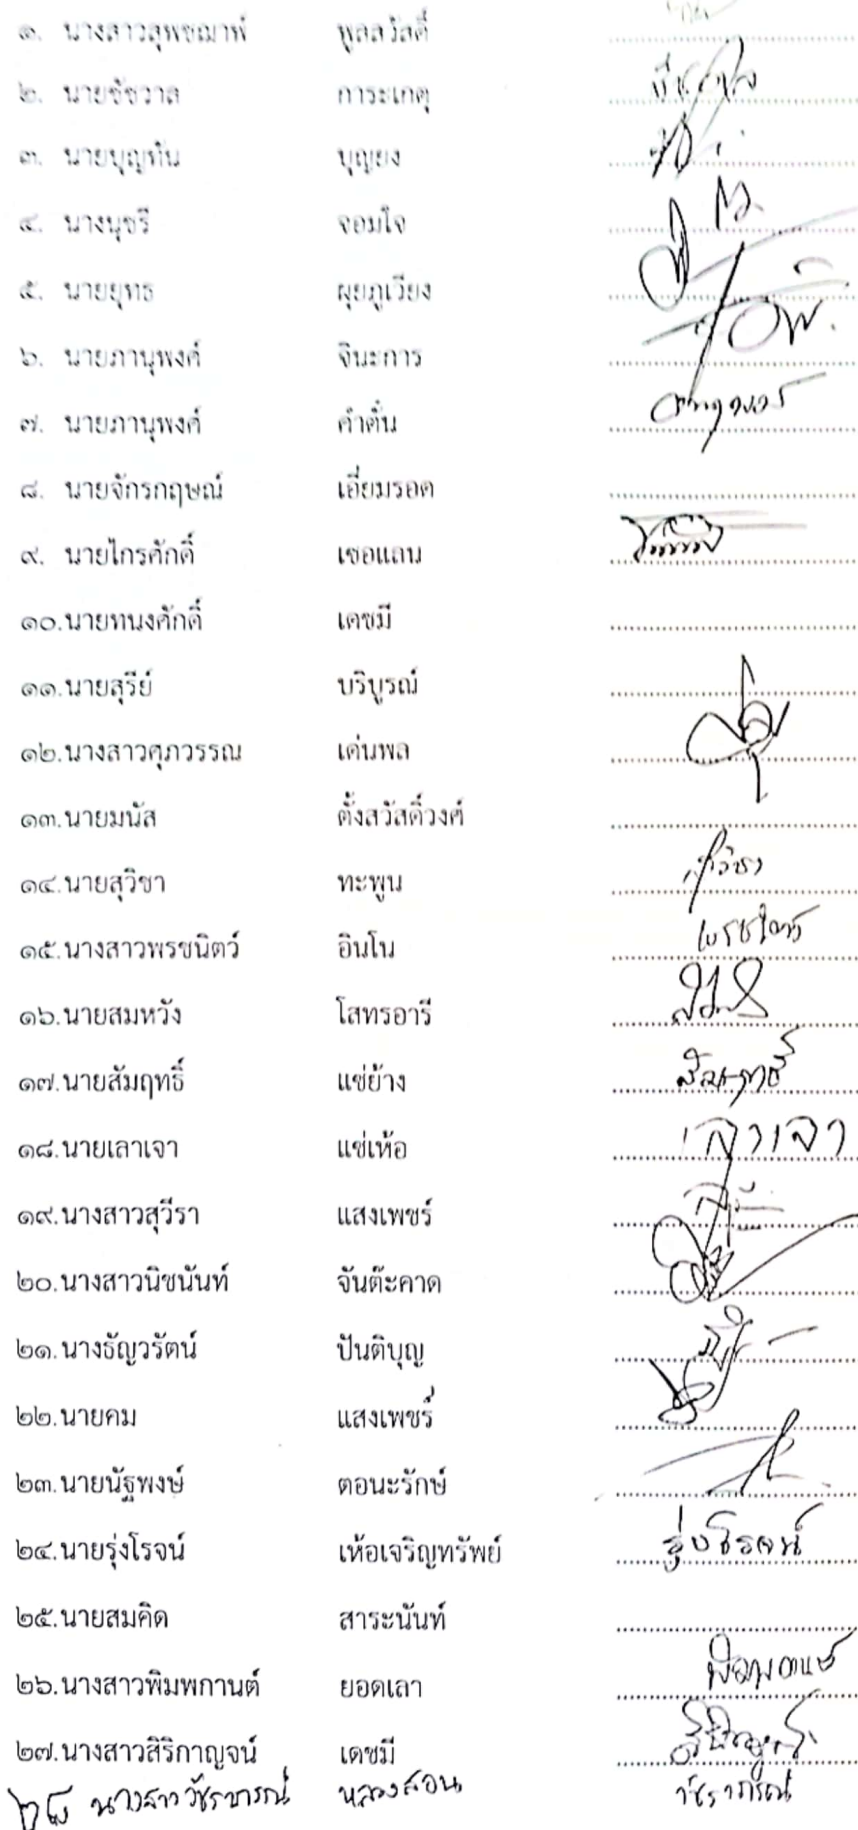 ๑. นางสาวสุพชฌาพ์ พูลสวัสดิ์
๒. นายชัชวาล การะเกตุ
๓. นายบุญทัน บุญยง
๔. นางนุชรี จอมใจ
๕. นายยุทธ ผุยภูเวียง
๖. นายภานุพงศ์ จินะการ
๗. นายภานุพงศ์ คำตั๋น
๘. นายจักรกฤษณ์ เอี่ยมรอด
๙. นายไกรศักดิ์ เชอแถน
๑๐.นายทนงศักดิ์ เดชมี
๑๑.นายสุรีย์ บริบูรณ์
๑๒.นางสาวศุภวรรณ เด่นพล
๑๓.นายมนัส ตั้งสวัสดิ์วงศ์
๑๔.นายสุวิชา ทะพูน สุวิชา
๑๕.นางสาวพรชนิตว์ อินโน
๑๖.นายสมหวัง โสทรอารี
๑๗.นายสัมฤทธิ์ แซ่ย้าง สัมฤทธิ์
๑๘.นายเลาเจา แซ่เห้อ เลาเจา
๑๙.นางสาวสุวีรา แสงเพชร์
๒๐.นางสาวนิชนันท์ จันต๊ะคาด
๒๑.นางธัญวรัตน์ ปันติบุญ
๒๒.นายคม แสงเพชร์
๒๓.นายนัฐพงษ์ ตอนะรักษ์
๒๔.นายรุ่งโรจน์ เห้อเจริญทรัพย์ รุ่งโรจน์
๒๕.นายสมคิด สาระนันท์
๒๖.นางสาวพิมพกานต์ ยอดเลา
๒๗.นางสาวสิริกาญจน์ เดชมี
๒๘ นางสาววัชราภรณ์ หลวงสอน วัชราภรณ์